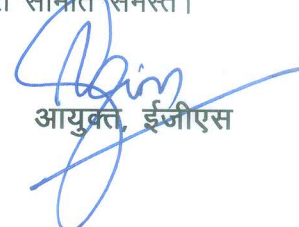 समिति समस्त।
आयुक्त, ईजीएस